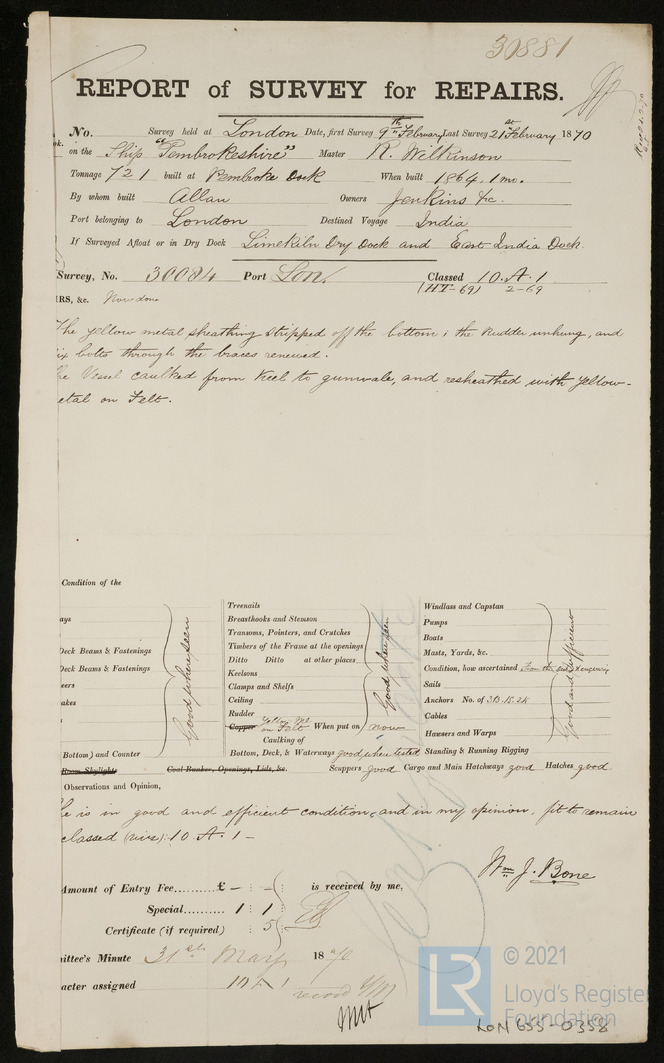 30881
REPORT of SURVEY for REPAIRS.
No. Survey held at London Date, first Survey 9th February Last Survey 21st February 1870
on the Ship "Pembrokeshire" Master R. Wilkinson
Tonnage 721 built at Pembroke Dock When built 1864. 1 mo.
By whom built Allan Owners Jenkins &c.
Port belonging to London Destined Voyage India
If Surveyed Afloat or in Dry Dock Limekiln Dry Dock and East India Dock
Survey, No. 30084 Port Lon. Classed 10. A. 1
(HT-69) 2-69
IRS, &c. Now done
The yellow metal sheathing stripped off the bottom; the Rudder unhung, and
ix bolts through the braces renewed.
he Vessel caulked from Keel to gunwale, and resheathed with yellow-
etal on Felt.
Condition of the
ays
Deck Beams & Fastenings
Deck Beams & Fastenings
eers
akes
Bottom) and Counter
Good where seen
Treenails
Breasthooks and Stemson
Transoms, Pointers, and Crutches
Timbers of the Frame at the openings
Ditto Ditto at other places
Keelsons
Clamps and Shelfs
Ceiling
Rudder
Copper Yellow Ml on Felt When put on now
Caulking of
Bottom, Deck, & Waterways good when tested
Good where seen
Windlass and Capstan
Pumps
Boats
Masts, Yards, &c.
Condition, how ascertained
Sails
Anchors No. of 3B. 1S. 2K
Cables
Hawsers and Warps
Standing & Running Rigging
Good and sufficient
Room Skylights Coal Bunker, Openings, Lids, &c. Scuppers good Cargo and Main Hatchways good Hatches good
Observations and Opinion,
he is in good and efficient condition, and in my opinion, fit to remain
classed 10. A. 1 -
Wm J. Bone
Amount of Entry Fee......... £ - : - : is received by me,
Special.......... 1 : 1 :
Certificate (if required) : 5 :
ittee's Minute 31st May 1870
acter assigned 10 A 1
© 2021
LR Lloyd's Register
Foundation
LON 655-0358